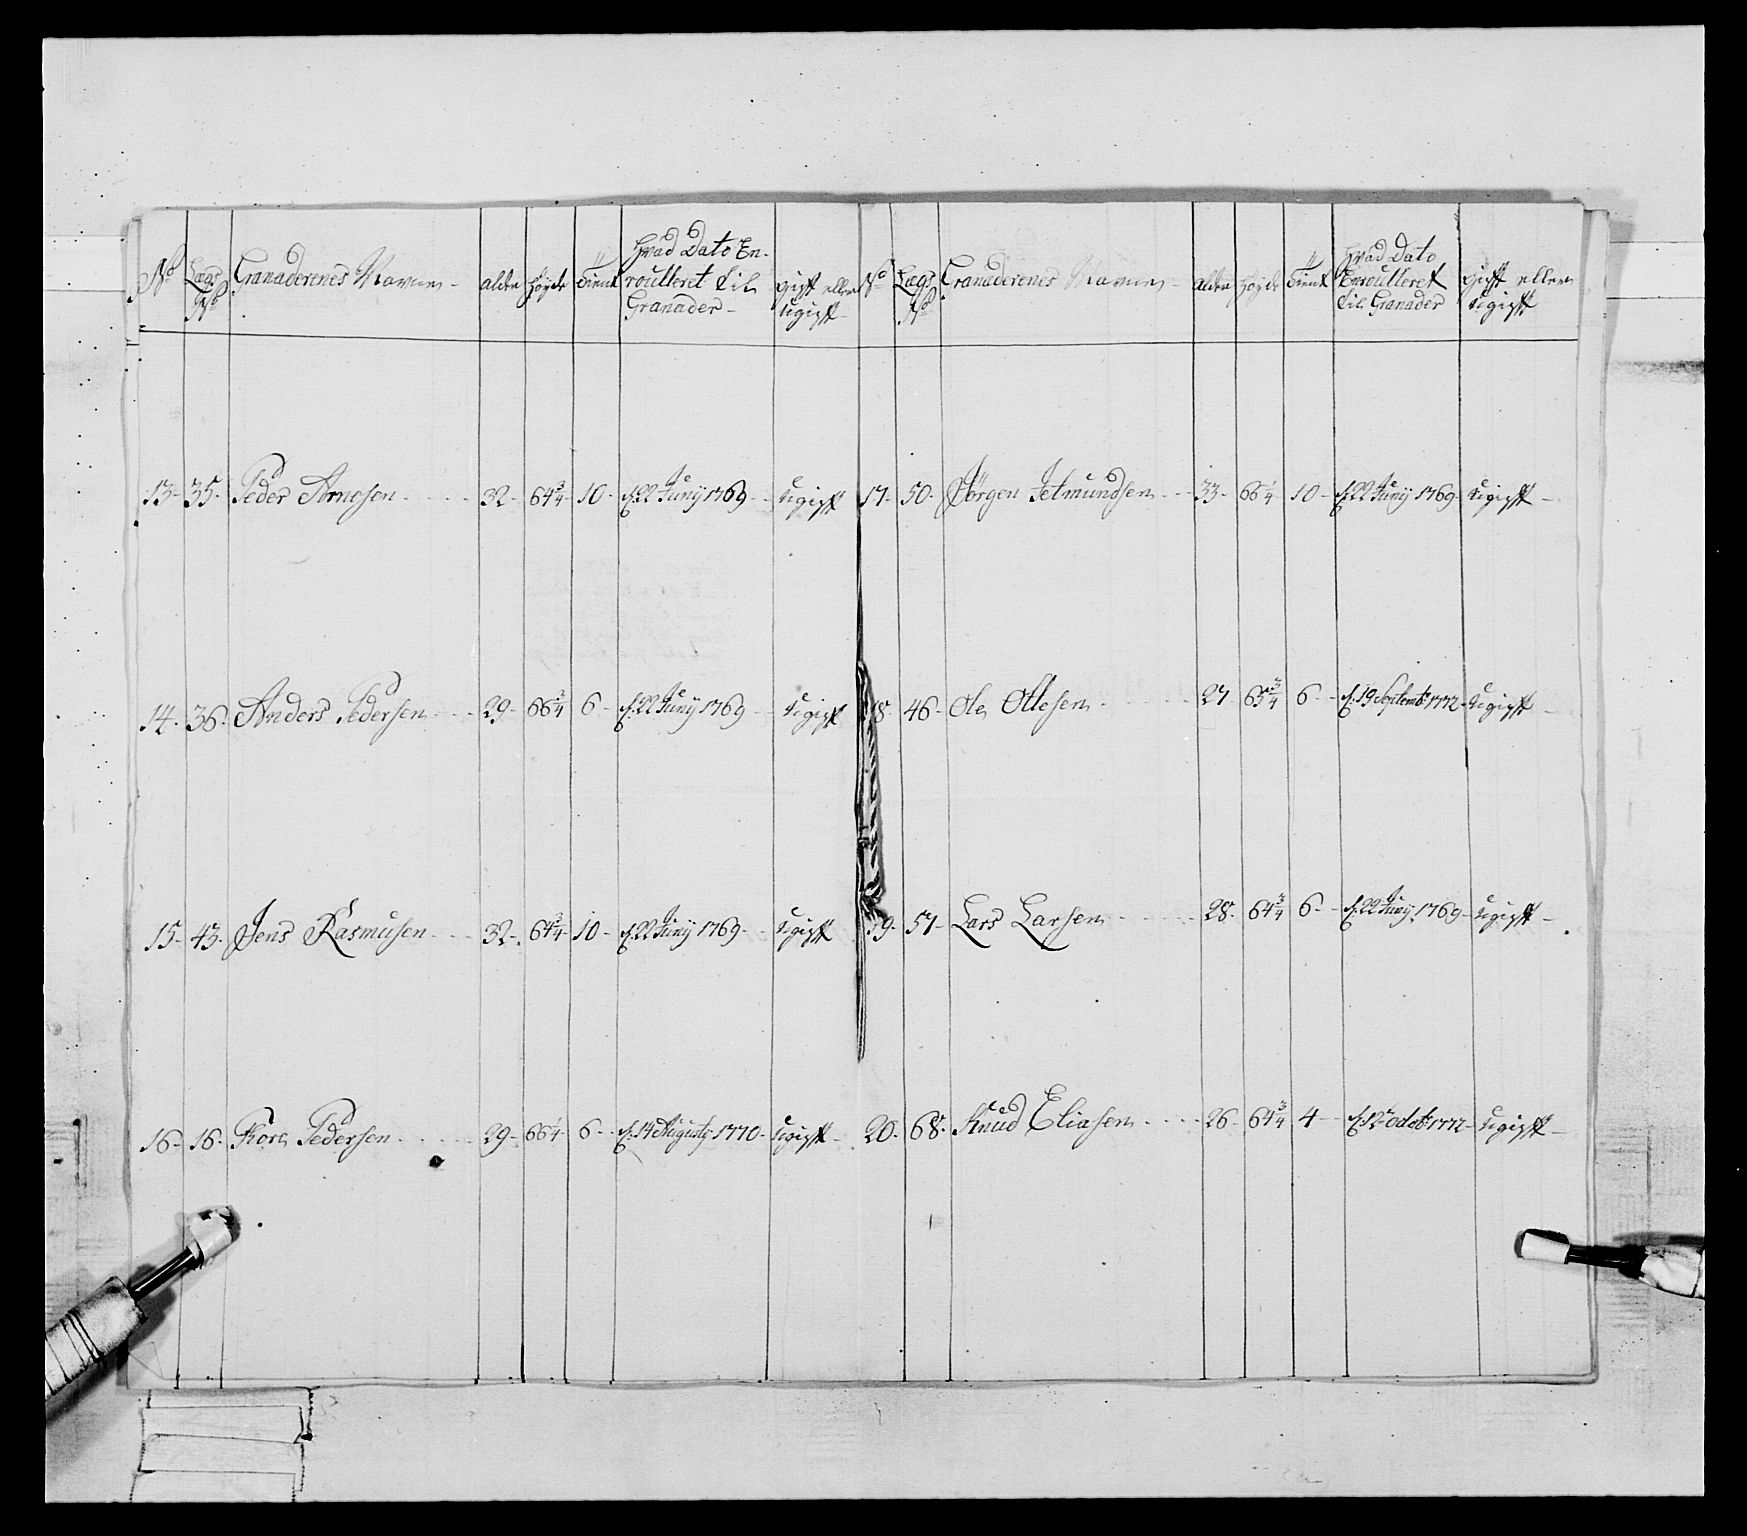 No Lags No Granaderenes Navne alder Høyde tient Hvad Dato En-
roulleret til
Granader
gift eller
Ugift
13 35 Peder Arnesen 32 64 3/4 10 d. 22 Juny 1769 Ugift
14 36 Anders Pedersen 29 66 3/4 6 d. 22 Juny 1769 Ugift
15 43 Jens Rasmusen 32 64 3/4 10 d. 22 Juny 1769 Ugift
16 16 Kore Pedersen 29 66 1/4 6 d. 14 Augusty 1770 Ugift
No Lags No Granaderenes Navne alder Høyde tient Hvad Dato
Enroulleret
til Granader
gift eller
Ugift
17 50 Jørgen Jetmundsen 33 66 1/4 10 d. 22 Juny 1769 Ugift
18 46 Ole Ollesen 27 65 3/4 6 d. 19 Septembr 1772 Ugift
19 57 Lars Larsen 28 64 3/4 6 d. 22 Juny 1769 Ugift
20 68 Knud Eliasen 26 64 3/4 4 d. 12 octob 1772 Ugift